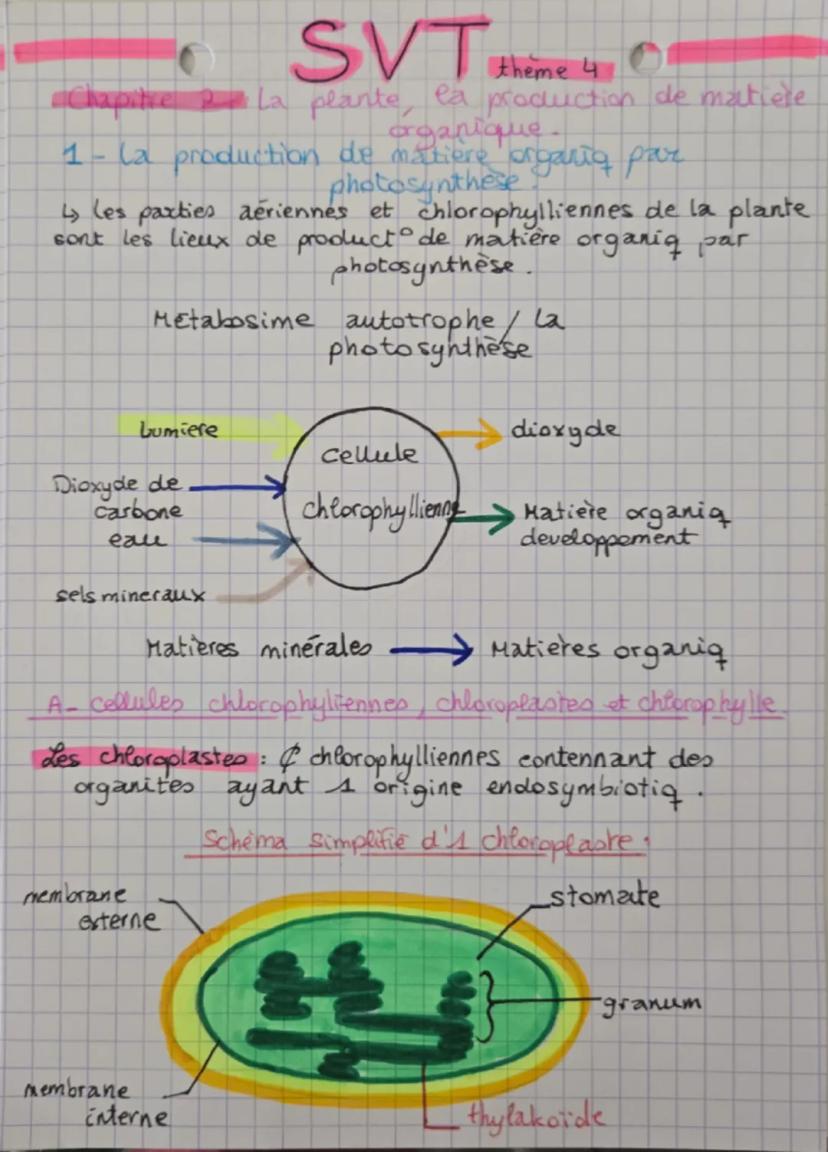 SVT thème 4
Chapitre 2 - La plante, la production de matière
organique.
1 - La production de matière organiq par
photosynthèse.
↳ les parties aériennes et chlorophylliennes de la plante
sont les lieux de product° de matière organiq par
photosynthèse.
Métabosime autotrophe / la
photosynthèse
Lumiere
cellule
chlorophyllienne
dioxyde
Dioxyde de
carbone
eau
Matière organiq
developpement
sels mineraux
Matières minérales → Matières organiq
A- cellules chlorophyliennes, chloroplastes et chlorophylle.
Les chloroplastes : ₵ chlorophylliennes contennant des
organites ayant 1 origine endosymbiotiq.
Schéma simplifié d'1 chloroplaste :
membrane
externe
stomate
granum
membrane
interne
thylakoïde